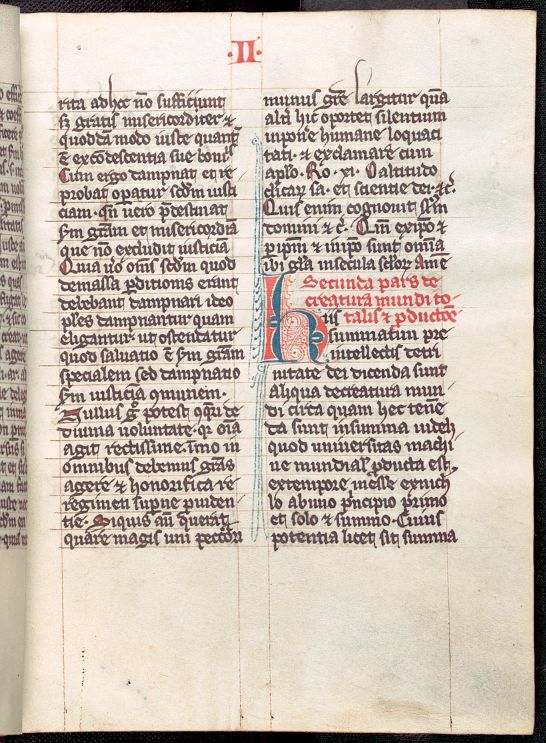 ·II·
rita ad hec nō sufficiunt
sꝫ gratis misericorditer ⁊
quodā modo iuste quantū
ē ex cōdescentia sue boni
Cum ergo dampnat et re
probat opatur scdm iusti
ciam. Cū uero p̄destinat
scdm grām et misericordiā
que nō excludit iusticiā
Quia uō om̄s scdm quod
de massa p̄ditionis erant
debebant dampnari ideo
p̄les dampnantur quam
eligantur ut ostendatur
quod saluatio ē scdm grām
specialem sed dampnatio
scdm iusticiā cōmunem.
Nullus gͦ potest cōq̄ri de
diuina uoluntate. qr oīa
agit rectissime. Imo in
omnibus debemus grās
agere ⁊ honorificare
regimen supne prouiden
tie. Siquis aū querat
quare magis uni peccōri
munus grē largitur quā
alti hic oportet silentium
inponē humane loquaci
tati. ⁊ exclamare cum
aplo. Ro. xi. O altitudo
diciarꝫ sa. et scientie dei. ⁊c̄.
Quis enim cognouit sen̄m
domini ⁊ c̄. Qm̄ ex ip̄o ⁊
p ip̄m ⁊ in ip̄o sunt omīa
ip̄i gl̄a in secula sclorꝫ Amē
Secunda pars de
creatura mundi to
talis ⁊ p̄ductōe
his
summatim pre
intellectis de tri
nitate dei dicenda sunt
aliqua de creatura mun
di circa quam hec tenē
da sunt in summa uidelꝫ
quod uniuersitas machi
ne mundialis p̄ducta est
ex tempore in esse ex nich
lo ab uno p̄ncipio primo
et solo ⁊ summo. Cuius
potentia licet sit summa